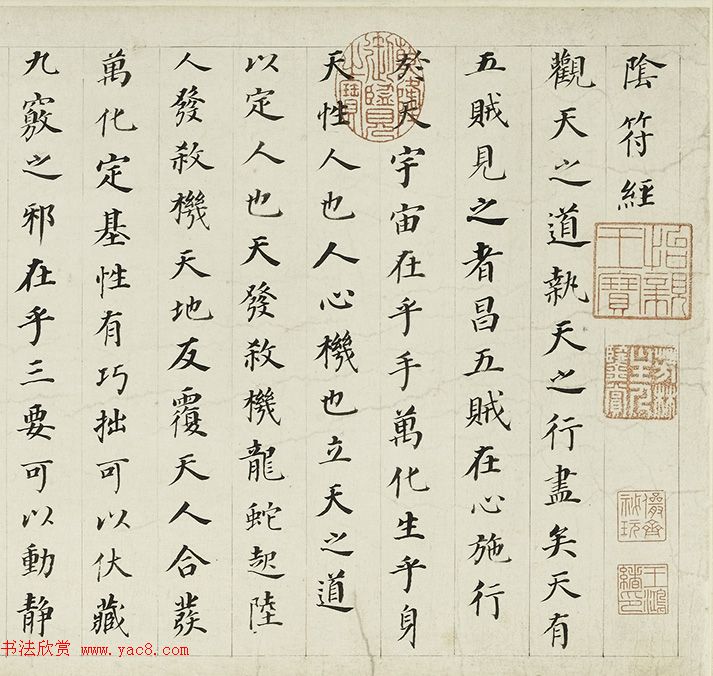 陰符經
觀天之道執天之行盡矣天有
五賊見之者昌五賊在心施行
於天宇宙在乎手萬化生乎身
天性人也人心機也立天之道
以定人也天發殺機龍蛇起陸
人發殺機天地反覆天人合發
萬化定基性有巧拙可以伏藏
九竅之邪在乎三要可以動靜
乾隆御覽之寶
怡親王寶
儼齋秘玩
王鴻緒印
书法欣赏 www.yac8.com